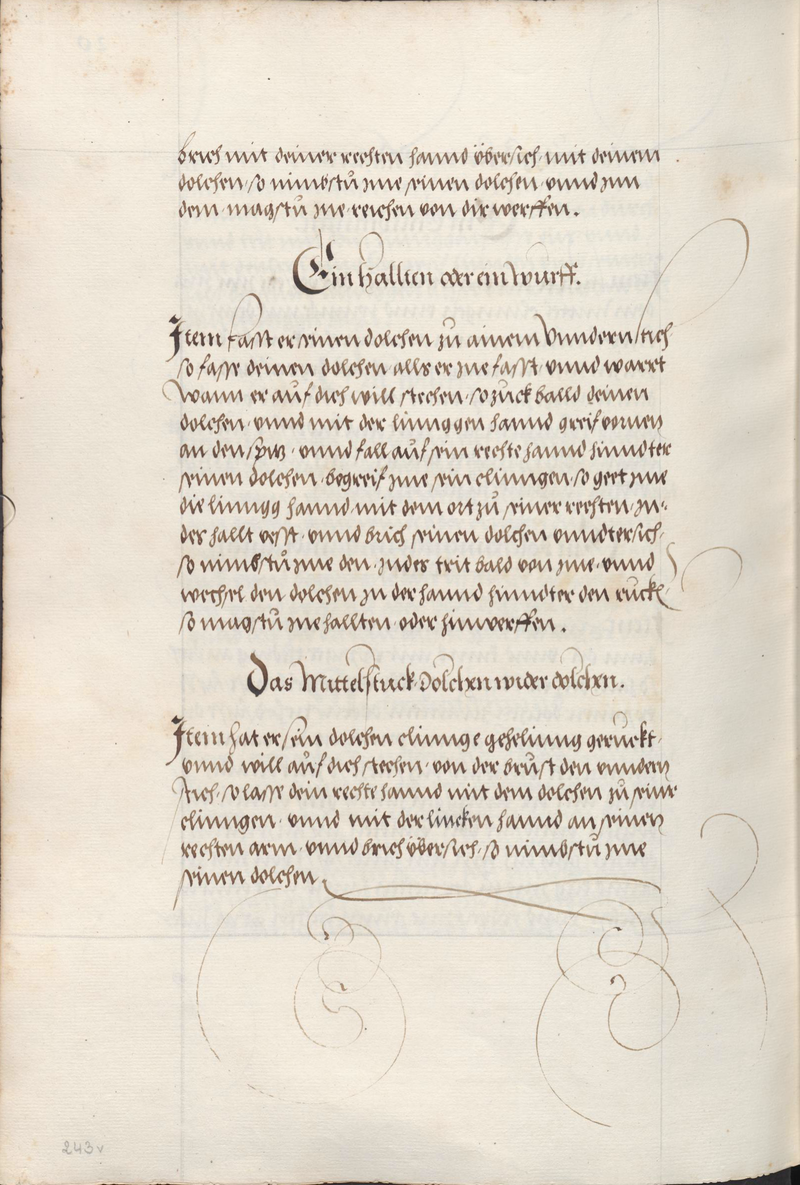 brich mit deiner rechten hannd übersich, mit deinem
dolchen, so nimbstū jme seinen dolchen, vnnd jnn
dem magstū jne reichen von dir werffen.
Ein Hallten oder ein Wurff.
Item fasst er seinen dolchen zū ainem Vnndern stich
so fasse deinen dolchen, alls er jne fasst, vnnd wartt
Wann er auf dich will stechen, so zuck balld deinen
dolchen, vnnd mit der linnggen hannd greif vornen
an den spitz, vnnd fall auf sein rechte hannd hinndter
seinen dolchen, begreif jme sein clinngen, so geet jme
die linngg hannd, mit dem ort zū seiner rechten, jn,,
des hallt vesst, vnnd brich seinen dolchen vnndtersich,
so nimbstū jme den, jndes trit bald von jme, vnnd
wechsel den dolchen jn der hannd hinndter den ruckh,
so magstū jne hallten, oder hinwerffen.
Das Mittelstuck Dolchen wider dolchen.
Item hat er sein dolchen clinnge gehelinng geruckt,
vnnd will auf dich stechen, von der brust den vnndern
stich, so lasse dein rechte hannd mit dem dolchen zū seiner
clinngen, vnnd mit der lincken hannd an seinen
rechten arm, vnnd brich übersich, so nimbstū jme
seinen dolchen.
243v